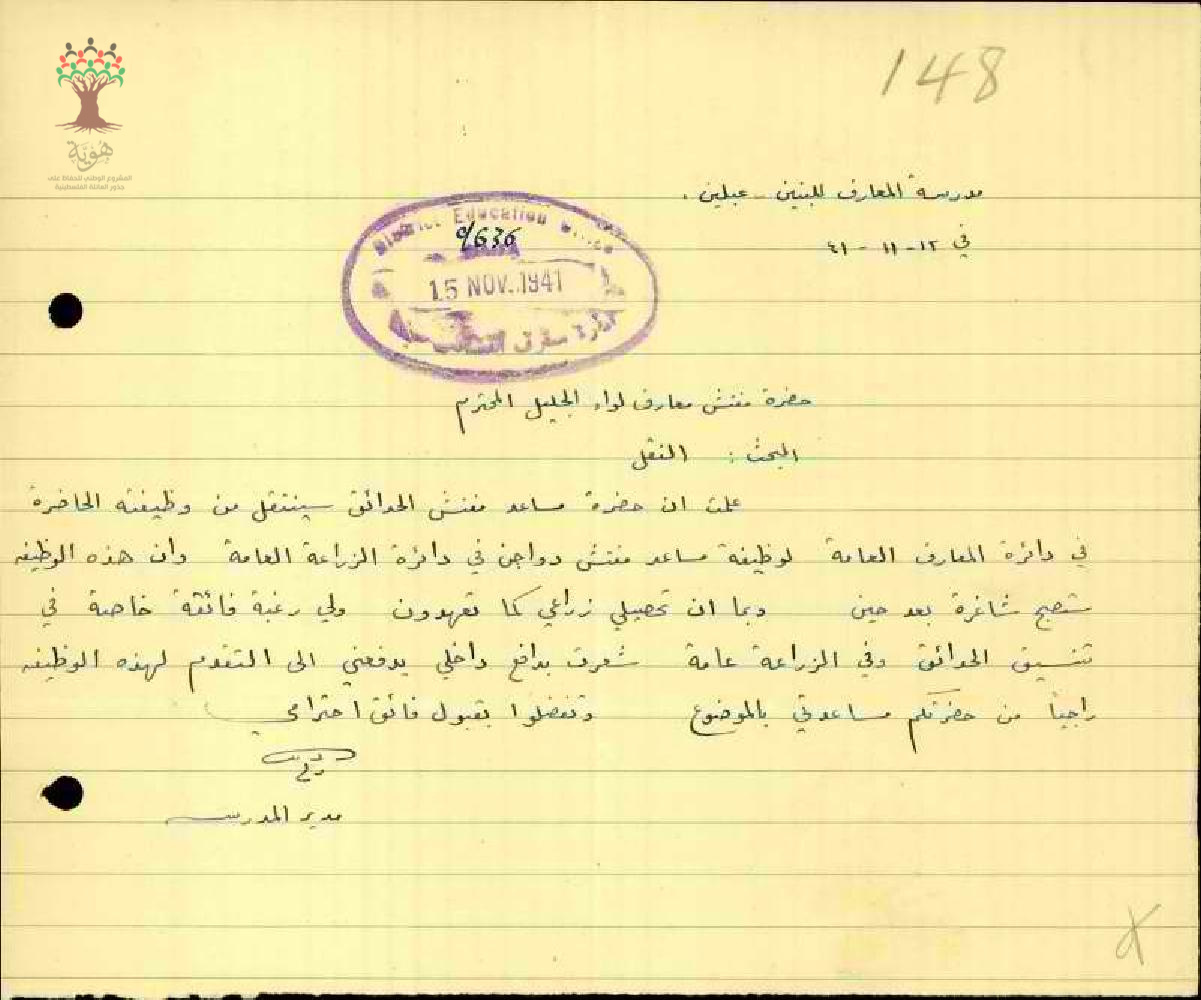 148
هُوِيَّة
المشروع الوطني للحفاظ على
جذور العائلة الفلسطينية
مدرسة المعارف للبنين - عبلين .
في ١٢ - ١١ - ٤١
District Education Office
9/636
15 NOV. 1941
حضرة مفتش معارف لواء الجليل المحترم
البحث : النقل
علمت ان حضرة مساعد مفتش الحدائق سينتقل من وظيفته الحاضرة
في دائرة المعارف العامة لوظيفة مساعد مفتش دواجن في دائرة الزراعة العامة وان هذه الوظيفه
ستصبح شاغرة بعد حين وبما ان تحصيلي زراعي كما تعهدون ولي رغبة فائقة خاصة في
تنسيق الحدائق وفي الزراعة عامة شعرت بدافع داخلي يدفعني الى التقدم لهذه الوظيفه
راجياً من حضرتكم مساعدتي بالموضوع وتفضلوا بقبول فائق احترامي
مدير المدرسه